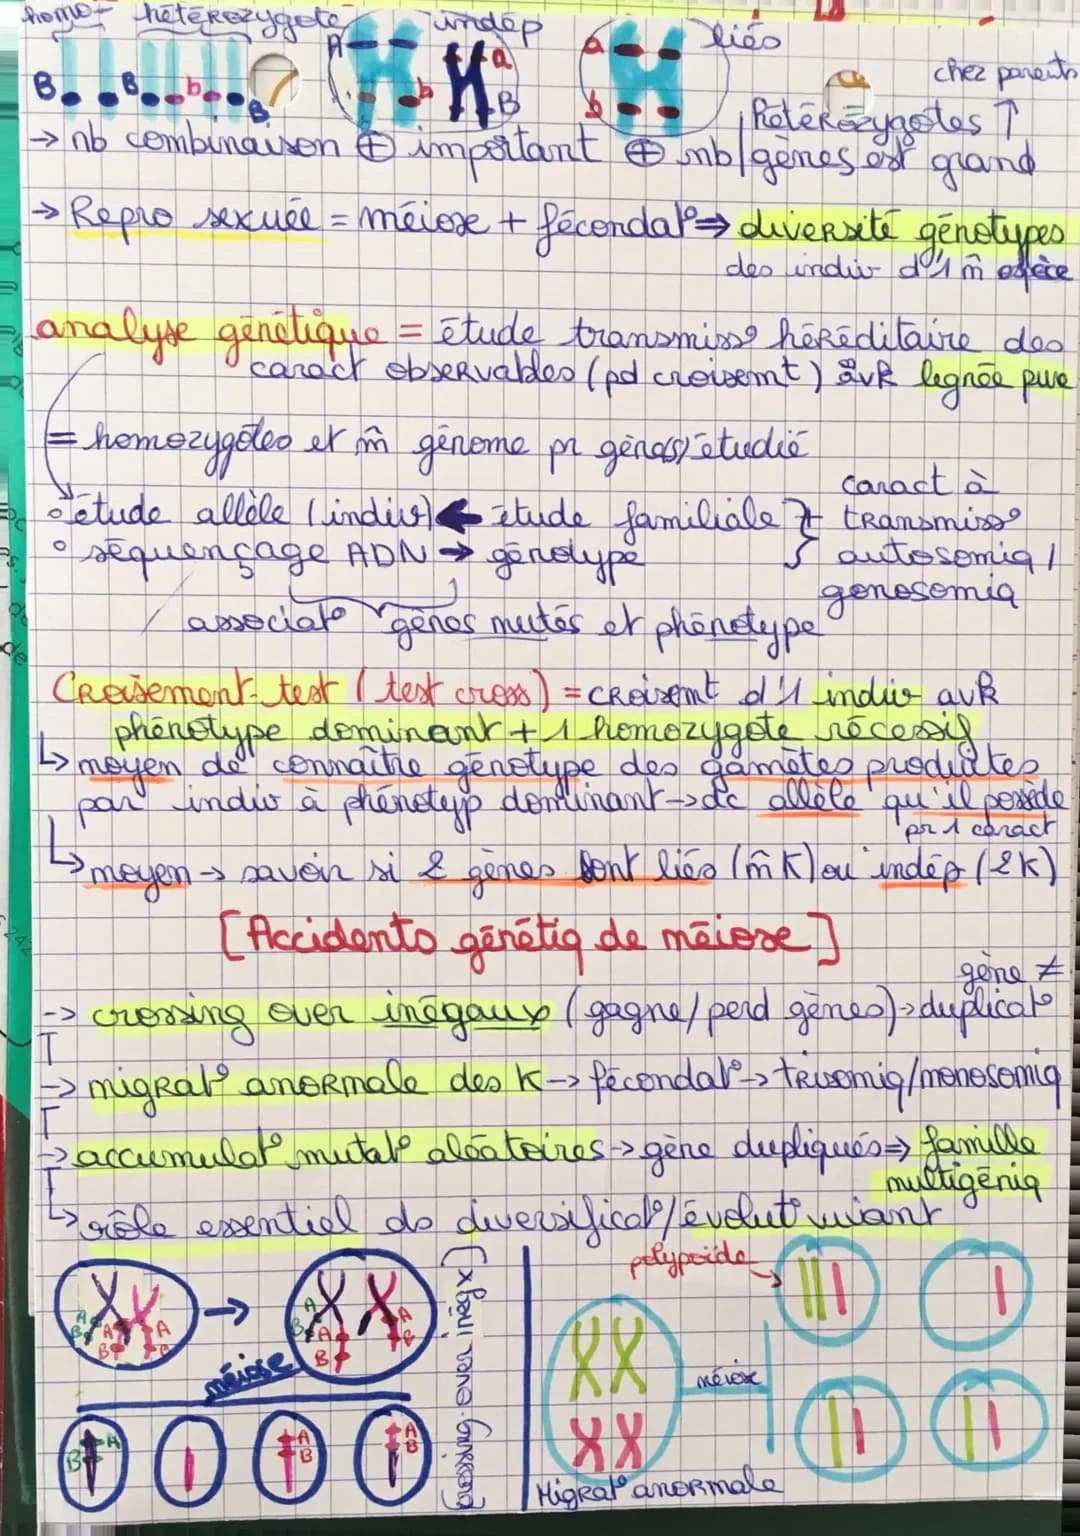 homo- hétérozygote indép liés
A a a
B B b B b B b
chez parents
hétérozygotes ↑
→ nb combinaison ⊕ important ⊕ nb gènes est grand
→ Repro sexuée = méiose + fécondat° ⇒ diversité génotypes
des indiv d'1 m̂ espèce
analyse génétique = étude transmiss° héréditaire des
caract observables (pd croisemt) avk legnée pure
= homozygotes et m̂ génome pr gène(s) étudié
caract à
° étude allèle (indiv) ← étude familiale } transmiss°
° séquençage ADN → génotype autosomiq /
gonosomiq
associat° gènes mutés et phénotype
Croisement-test (test cross) = croisemt d'1 indiv avk
phénotype dominant + 1 homozygote récessif
↳ moyen de connaître génotype des gamètes produites
par indiv à phénotyp dominant → dc allèle qu'il possède
pr 1 caract
↳ moyen → savoir si 2 gènes sont liés (m̂ K) ou indép (2K)
[Accidents génétiq de méiose]
gène ≠
-> crossing over inégaux (gagne/perd gènes) → duplicat°
-> migrat° anormale des K -> fécondat° -> trisomiq/monosomiq
-> accumulat° mutat° aléatoires -> gène dupliqués ⇒ famille
multigéniq
↳ rôle essentiel ds diversificat°/évolut° vivant
polypoïde
A B A B A B
A B A B A B
méiose
méiose
(crossing. over inégx)
B A A B A B
Migrat° anormale